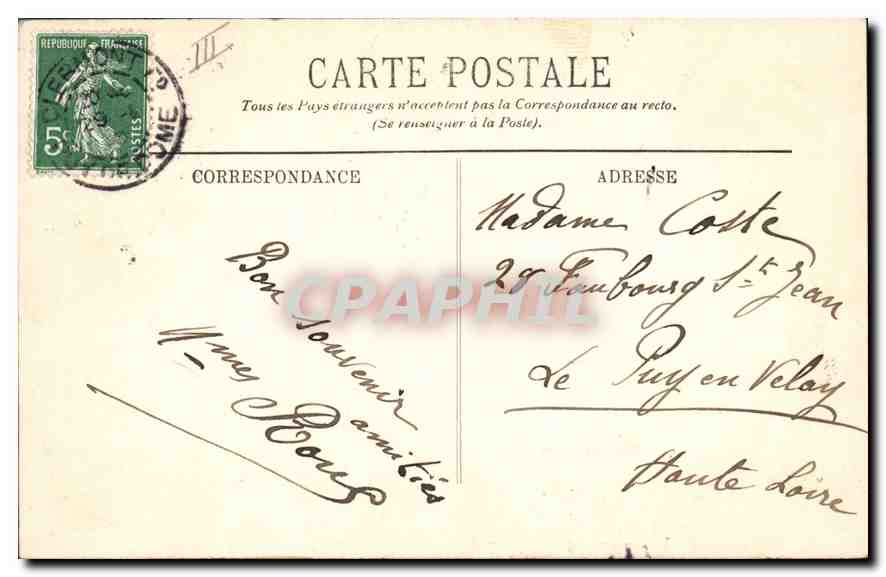 REPUBLIQUE FRANCAISE
5c POSTES
CLERMONT Fd
DOME
III
CARTE POSTALE
Tous les Pays étrangers n'acceptent pas la Correspondance au recto.
(Se renseigner à la Poste).
CORRESPONDANCE
Bon souvenir
amitiés
Roux
ADRESSE
Madame Coste
28 Faubourg St Jean
Le Puy en Velay
Haute Loire
CPAPHIL